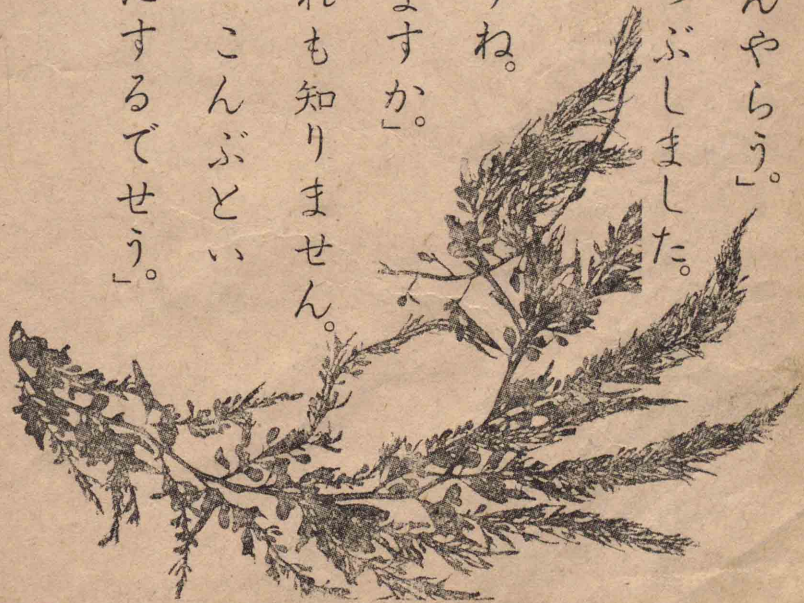 んやらう。」
つぶしました。
ね。
ますか。」
れも知りません。
こんぶとい
にするでせう。」